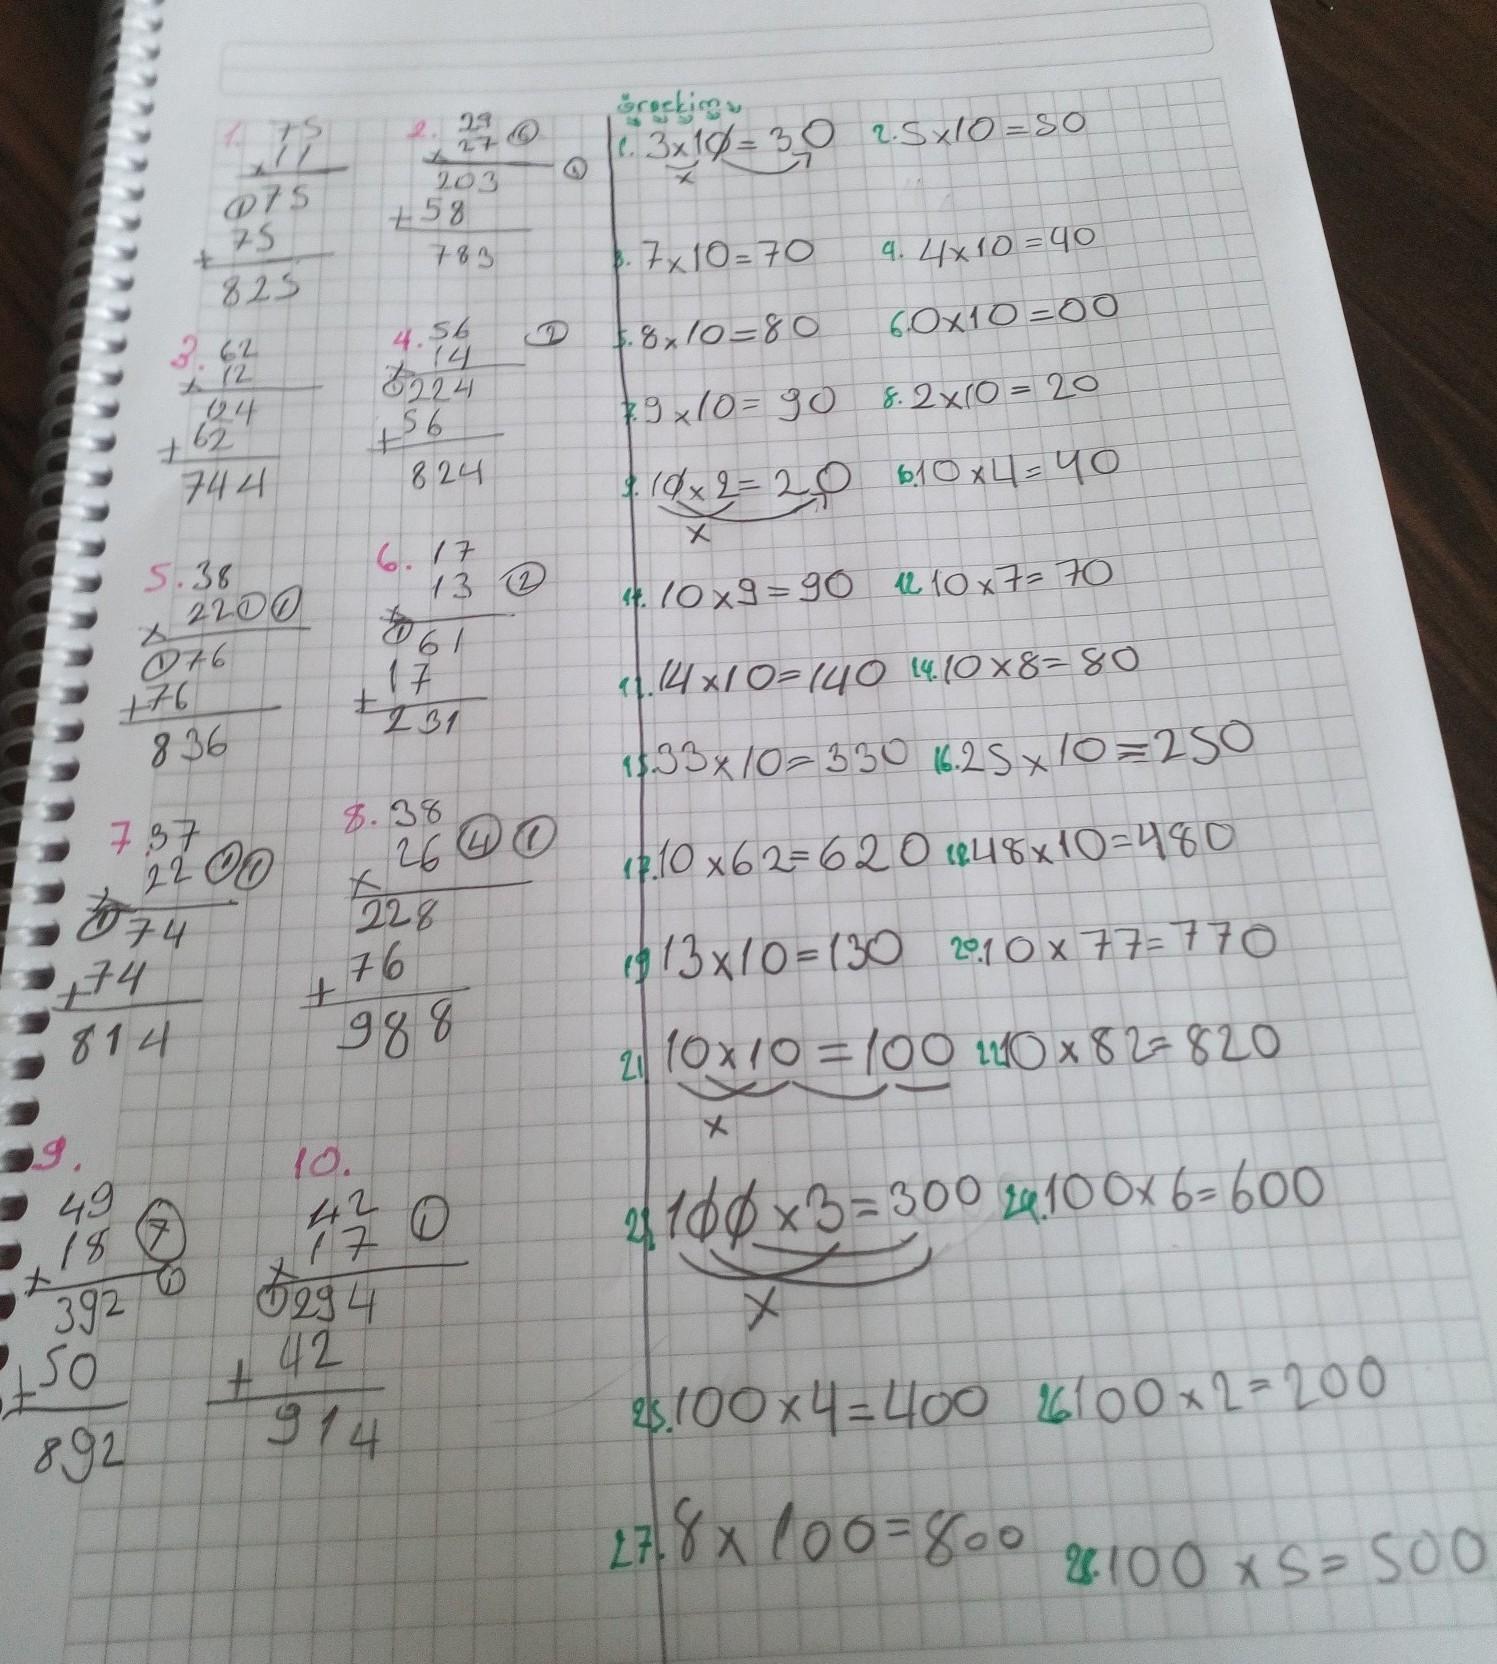 1. 75
x 11
①75
+ 75
825
2. 29
x 27 ⑥
203 ①
+ 58
783
3. 62
x 12
124
+ 62
744
4. 56 ②
x 14
①224
+ 56
824
5. 38
x 22 ① ①
①76
+ 76
836
6. 17
x 13 ②
①61
+ 17
231
7. 37
x 22 ① ①
①74
+ 74
814
8. 38
x 26 ④ ①
228
+ 76
988
9.
49
x 18 ⑦
392 ①
+ 50
892
10.
42 ①
x 17
①294
+ 42
914
1. 3x10=30 2. 5x10=50
x
3. 7x10=70 4. 4x10=40
5. 8x10=80 6. 0x10=00
7. 9x10=90 8. 2x10=20
9. 10x2=20 10x4=40
x
11. 10x9=90 12. 10x7=70
14x10=140 14. 10x8=80
15. 33x10=330 16. 25x10=250
17. 10x62=620 18. 48x10=480
19 13x10=130 20. 10x77=770
21 10x10=100 22. 10x82=820
x
100x3=300 24. 100x6=600
x
25. 100x4=400 26 100x2=200
27. 8x100=800 28. 100x5=500